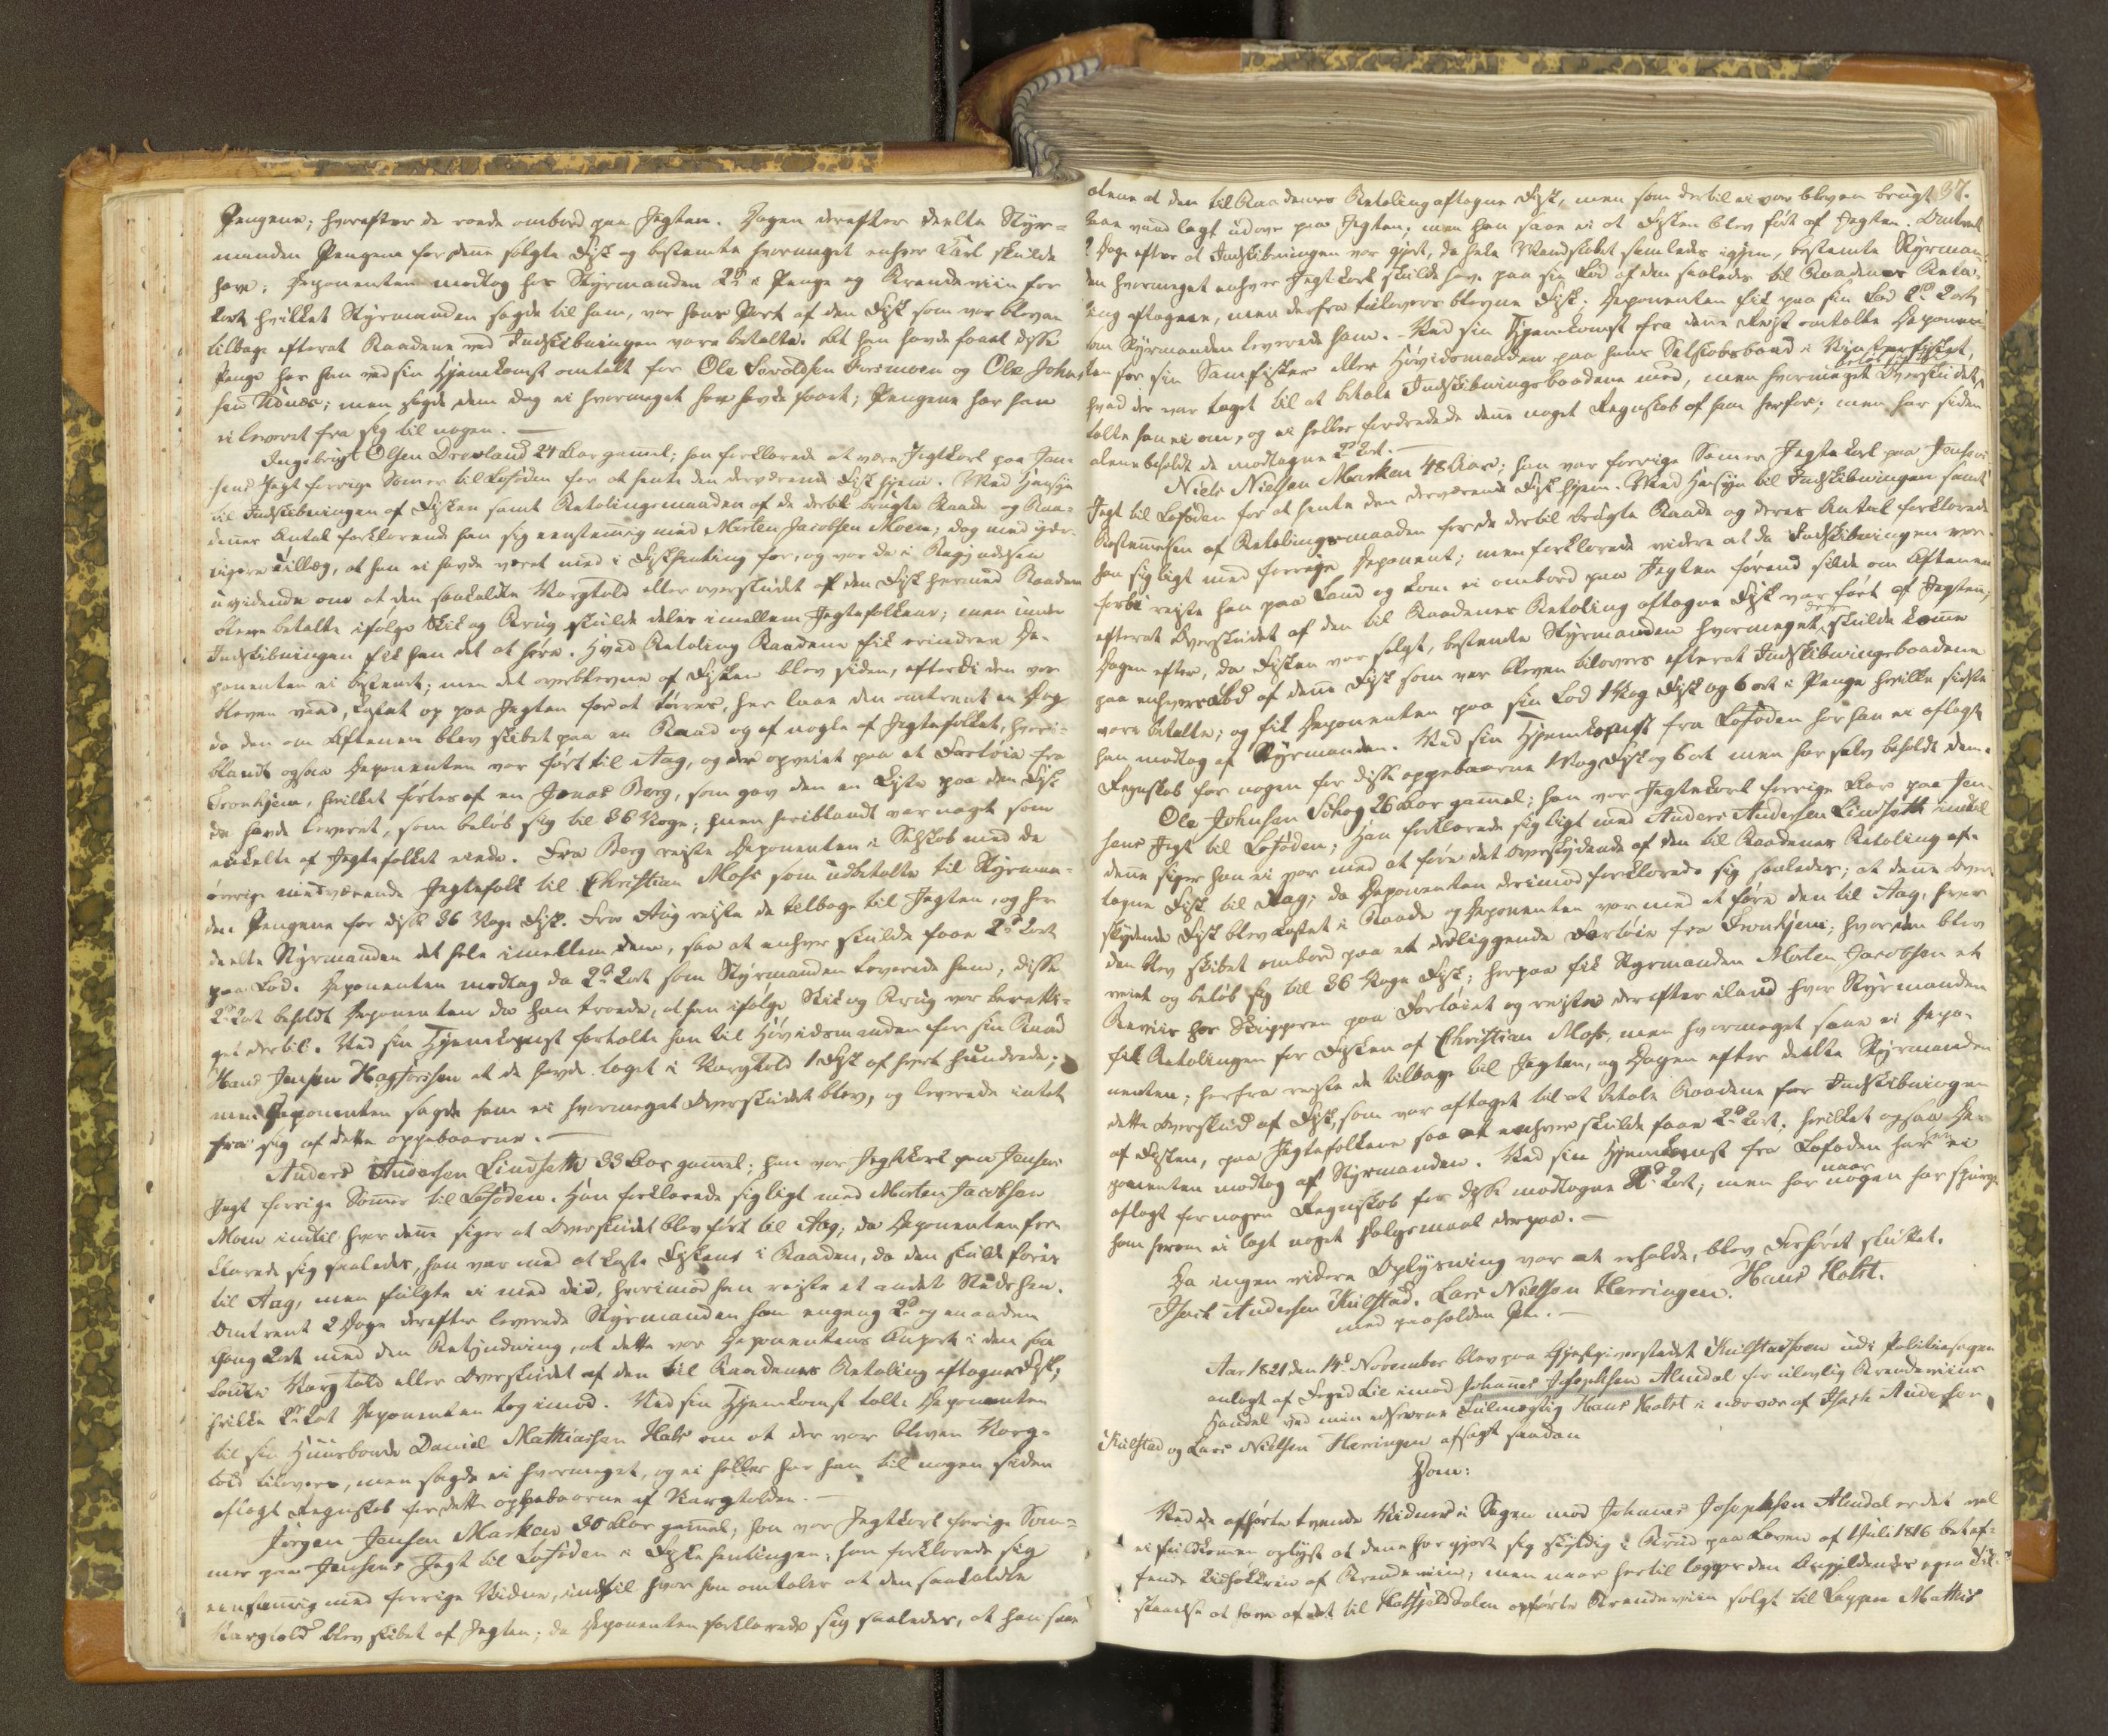 Pengene; hvorefter de roede ombord paa Jegten. Dagen derefter deelte Styr-
manden Pengene for denne solgte Fisk og bestemte hvormeget enhver Karl skulde
have; Deponenten modtog hos Styrmanden 2 i Penge og Brændeviin for
2ort hvilket Styrmanden sagde til ham, var hans Part af den Fisk som var bleven
tilbage efterat Baadene ved Indskibningen vare betalte. At han havde faaet disse
Penge har han ved sin Hjemkomst omtalt for Ole Ivarsmoen og Ole John-
sen Udnæs; men sagde dem dog ei hvormeget han havde faaet; Pengene har han
ei leveret fra sig til nogen. —
Ingebrigt Olsen Drevland 24 Aar gammel; han forklarede at være Jegtkarl paa Jen-
sens Jegt forrige Sommer til Lofoden for at hente den derværende Fisk hjem. Med Hensyn
til Indskibningen af Fisken samt Betalingsmaaden af de dertil brugte Baade og Baa-
denes Antal forklarende han sig eenstemmig med Morten Jacobsen Moen, dog med yder-
ligere Tillæg, at han ei havde været med i Fiskhenting før, og var da i Begyndelsen
uvidende om at den saakaldte Vargtold eller overskudet af den Fisk hvermed Baadene
bleve betalte ifølge Skik og Brug skulde deles imellem Jegtefolkene; men under
Indskibningen fik han det at høre. Hvad Betaling Baadene fik erindrer De-
ponenten ei bestemt; men det overblevne af Fisken blev siden, efterdi den var
bleven vaad, kastet op paa Jegten for at tørres, her laae den omtrent en Dag
da den om Aftenen blev skibet paa en Baad og af nogle af Jegtefolket, hvori-
blandt ogsaa Deponenten var ført til Aag, og der opveiet paa et Fartøie fra
Tronhjem, hvilket førtes af en Jonas Berg, som gav dem en Liste paa den Fisk
de havde leveret, som beløb sig til 36 Voge; hvori iblandt var noget som
enkelte af Jegtefolket eiede. Fra Berg reiste Deponenten i Selskab med de
øvrige medværende Jegtefolk til Christian Moss som udbetalte til Styrman-
den Pengene for disse 36 Voge Fisk. Fra Aag reiste de tilbage til Jegten, og her
deelte Styrmanden det hele imellem dem, saa at enhver skulde faae 2 2ort
paa Lod. Deponenten modtog da 2 2ort som Styrmanden leverede ham; disse
2 2ort beholdt Deponenten da han troede, at han ifølge Skik og Brug var beretti-
get dertil. Ved sin Hjemkomst fortalte han til Høvedsmanden for sin Baad
Hans Jensen Hagfors at de havde taget i Vargtold 1 Fisk af hvert hundrede;
men Deponenten sagde ham ei hvormeget Overskudet blev, og leverede intet
fra sig af dette oppebaarne. —
Anders Andersen Lindseth 33 Aar gammel; han var Jegtekarl paa Jensens
Jegt forrige Sommer til Lofoden. Han forklarede sig ligt med Morten Jacobsen
Moen indtil hvor denne siger at Overskudet blev ført til Aag, da Deponenten for-
klarede sig saaledes, han var med at kaste Fiskene i Baaden, da den skulde føres
til Aag, men fulgte ei med did, hvorimod han reiste et andet Steds hen.
Omtrent 2 Dage derefter leverede Styrmanden ham engang 2 og en anden
Gang 2ort med den Betydning, at dette var Deponentens Anpart i den saa-
kaldte Vargtold eller Overskudet af den til Baadenes Betaling aftagne Fisk,
hvilke 2 2ort Deponenten tog imod. Ved sin Hjemkomst talte Deponenten
til sin Huusbonde Daniel Mathiasen Hals om at der var bleven Varg-
told tilovers, men sagde ei hvormeget, og ei heller har han til nogen siden
aflagt Regnskab for dette oppebaarne af Vargtolden. —
Jørgen Jensen Marken 30 Aar gammel; han var Jegtkarl forrige Som-
mer paa Jensens Jegt til Lofoden i Fiske hentingen; han forklarede sig
eenstemmig med forrige Vidne, indtil hvor han omtaler at den saakaldte
Vargtold blev skibet af Jegten; da Deponenten forklarede sig saaledes, at han saae
37.
alene at den til Baadenes Betaling aftagne Fisk, men som dertil ei var bleven brugt
laae vaad lagt udover paa Jegten; men han saae ei at Fisken blev ført af Jegten. Omtrent
2 Dage efter at Indskibningen var gjort, da hele Mandskabet samledes igjen, bestemte Styrman-
den hvormeget enhver Jegtkarl skulde have paa sin Lod af den saaledes til Baadenes Beta-
ling aftagne, men derfra tilovers blevne Fisk; Deponenten fik paa sin Lod 2 2ort
som Styrmanden leverede ham. — Ved sin Hjemkomst fra denne Reise omtalte Deponen-
ten for sin Samfisker eller Høvidsmanden paa hans Selskabsbaad i Vinterfisket,
hvad der var taget til at betale Indskibningsbaadene med, men hvormeget Overskudet beløb sig til
talte han ei om, og ei heller fordrede denne noget Regnskab af ham herfor; men har siden
alene beholdt de modtagne 2 2ort. —
Niels Nielsen Marken 48 Aar; han var forrige Sommer Jegtekarl paa Jensens
Jegt til Lofoden for at hente den derværende Fisk hjem. Med Hensyn til Indskibningen samt
Bestemmelsen af Betalingsmaaden for de dertil brugte Baade og deres Antal forklarede
han sig ligt med forrige Deponent; men forklarede videre at da Indskibningen var
forbi reiste han paa Land og kom ei ombord paa Jegten førend silde om Aftenen
efterat Overskudet af den til Baadenes Betaling aftagne Fisk var ført af Jegten;
Dagen efter, da Fisken var solgt, bestemte Styrmanden hvormeget der skulde komme
paa enhvers Lod af denne Fisk som var bleven tilovers efterat Indskibningsbaadene
vare betalte; og fik Deponenten paa sin Lod 1 Vog Fisk og 6 ort i Penge hvilke sidste
han modtog af Styrmanden. Ved sin Hjemkomst fra Lofoden har han ei aflagt
Regnskab for nogen for disse oppebaarne 1 Vog Fisk og 6 ort men har selv beholdt dem.
Ole Johnsen Schog 26 Aar gammel; han var Jegtekarl forrige Aar paa Jen-
sens Jegt til Lofoden; Han forklarede sig ligt med Anders Andersen Lindseth indtil
denne siger han ei var med at føre det overskydende af den til Baadenes Betaling af-
tagne Fisk til Aag; da Deponenten derimod forklarede sig saaledes; at denne over-
skydende Fisk blev kastet i Baade og Deponenten var med at føre den til Aag, hvor
den blev skibet ombord paa et derliggende Fartøie fra Tronhjem; hvor den blev
veiet og beløb sig til 36 Voge Fisk; herpaa fik Styrmanden Morten Jacobsen et
Beviis hos Skipperen paa Fartøiet og reiste derefter iland hvor Styrmanden
fik Betalingen for Fisken af Christian Moss, men hvormeget saae ei Depo-
nenten; herfra reiste de tilbage til Jegten, og Dagen efter deelte Styrmanden
dette Overskud af Fisk, som var aftaget til at betale Baadene for Indskibningen
af Fisken, paa Jegtefolkene saa at enhver skulde faae 2 2ort. hvilket ogsaa De-
ponenten modtog af Styrmanden. Ved sin Hjemkomst fra Lofoden har han ei
aflagt for nogen Regnskab for disse modtagne 2 2ort; men har naar nogen har spurgt
ham herom ei lagt noget Dølgsmaal derpaa. —
Da ingen videre Oplysning var at erholde, blev Forhøret sluttet.
Isach Andersen Kulstad. Lars Nielsen Herringen. Hans Holst.
med paaholden Pen. —
Aar 1821 den 14 November blev paa Gjestgiverstedet Kulstadsøen udi Politiesagen
anlagt af Foged Lie imod Johannes Josephsen Almdal for ulovlig Brændeviins
Handel ved min edsvorne Fulmægtig Hans Holst i nærvær af Isach Andersen
Kulstad og Lars Nielsen Herringen afsagt saadan
Dom:
Ved de afhørte tvende Vidner i Sagen mod Johannes Josephsen Almdal er det vel
ei fuldkommen oplyst at denne har gjort sig skyldig i Brud paa Loven af 1 Juli 1816 betræf-
fende Udskiænken af Brændeviin; men naar hertil lægges den Angjeldendes egen Til-
staaelse at have af det til Hatfjelddalen opførte Brændeviin solgt til Lappen Mathis